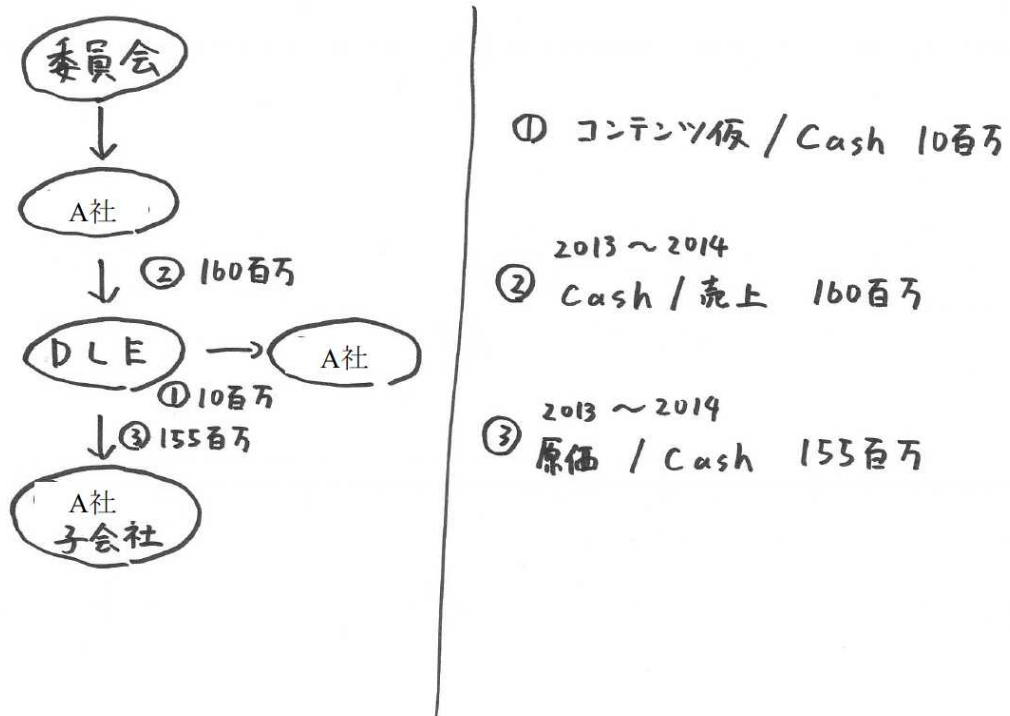 委員会
A社
② 160百万
DLE
A社
① 10百万
③ 155百万
A社
子会社
① コンテンツ仮 / Cash 10百万
2013 ～ 2014
② Cash / 売上 160百万
2013 ～ 2014
③ 原価 / Cash 155百万